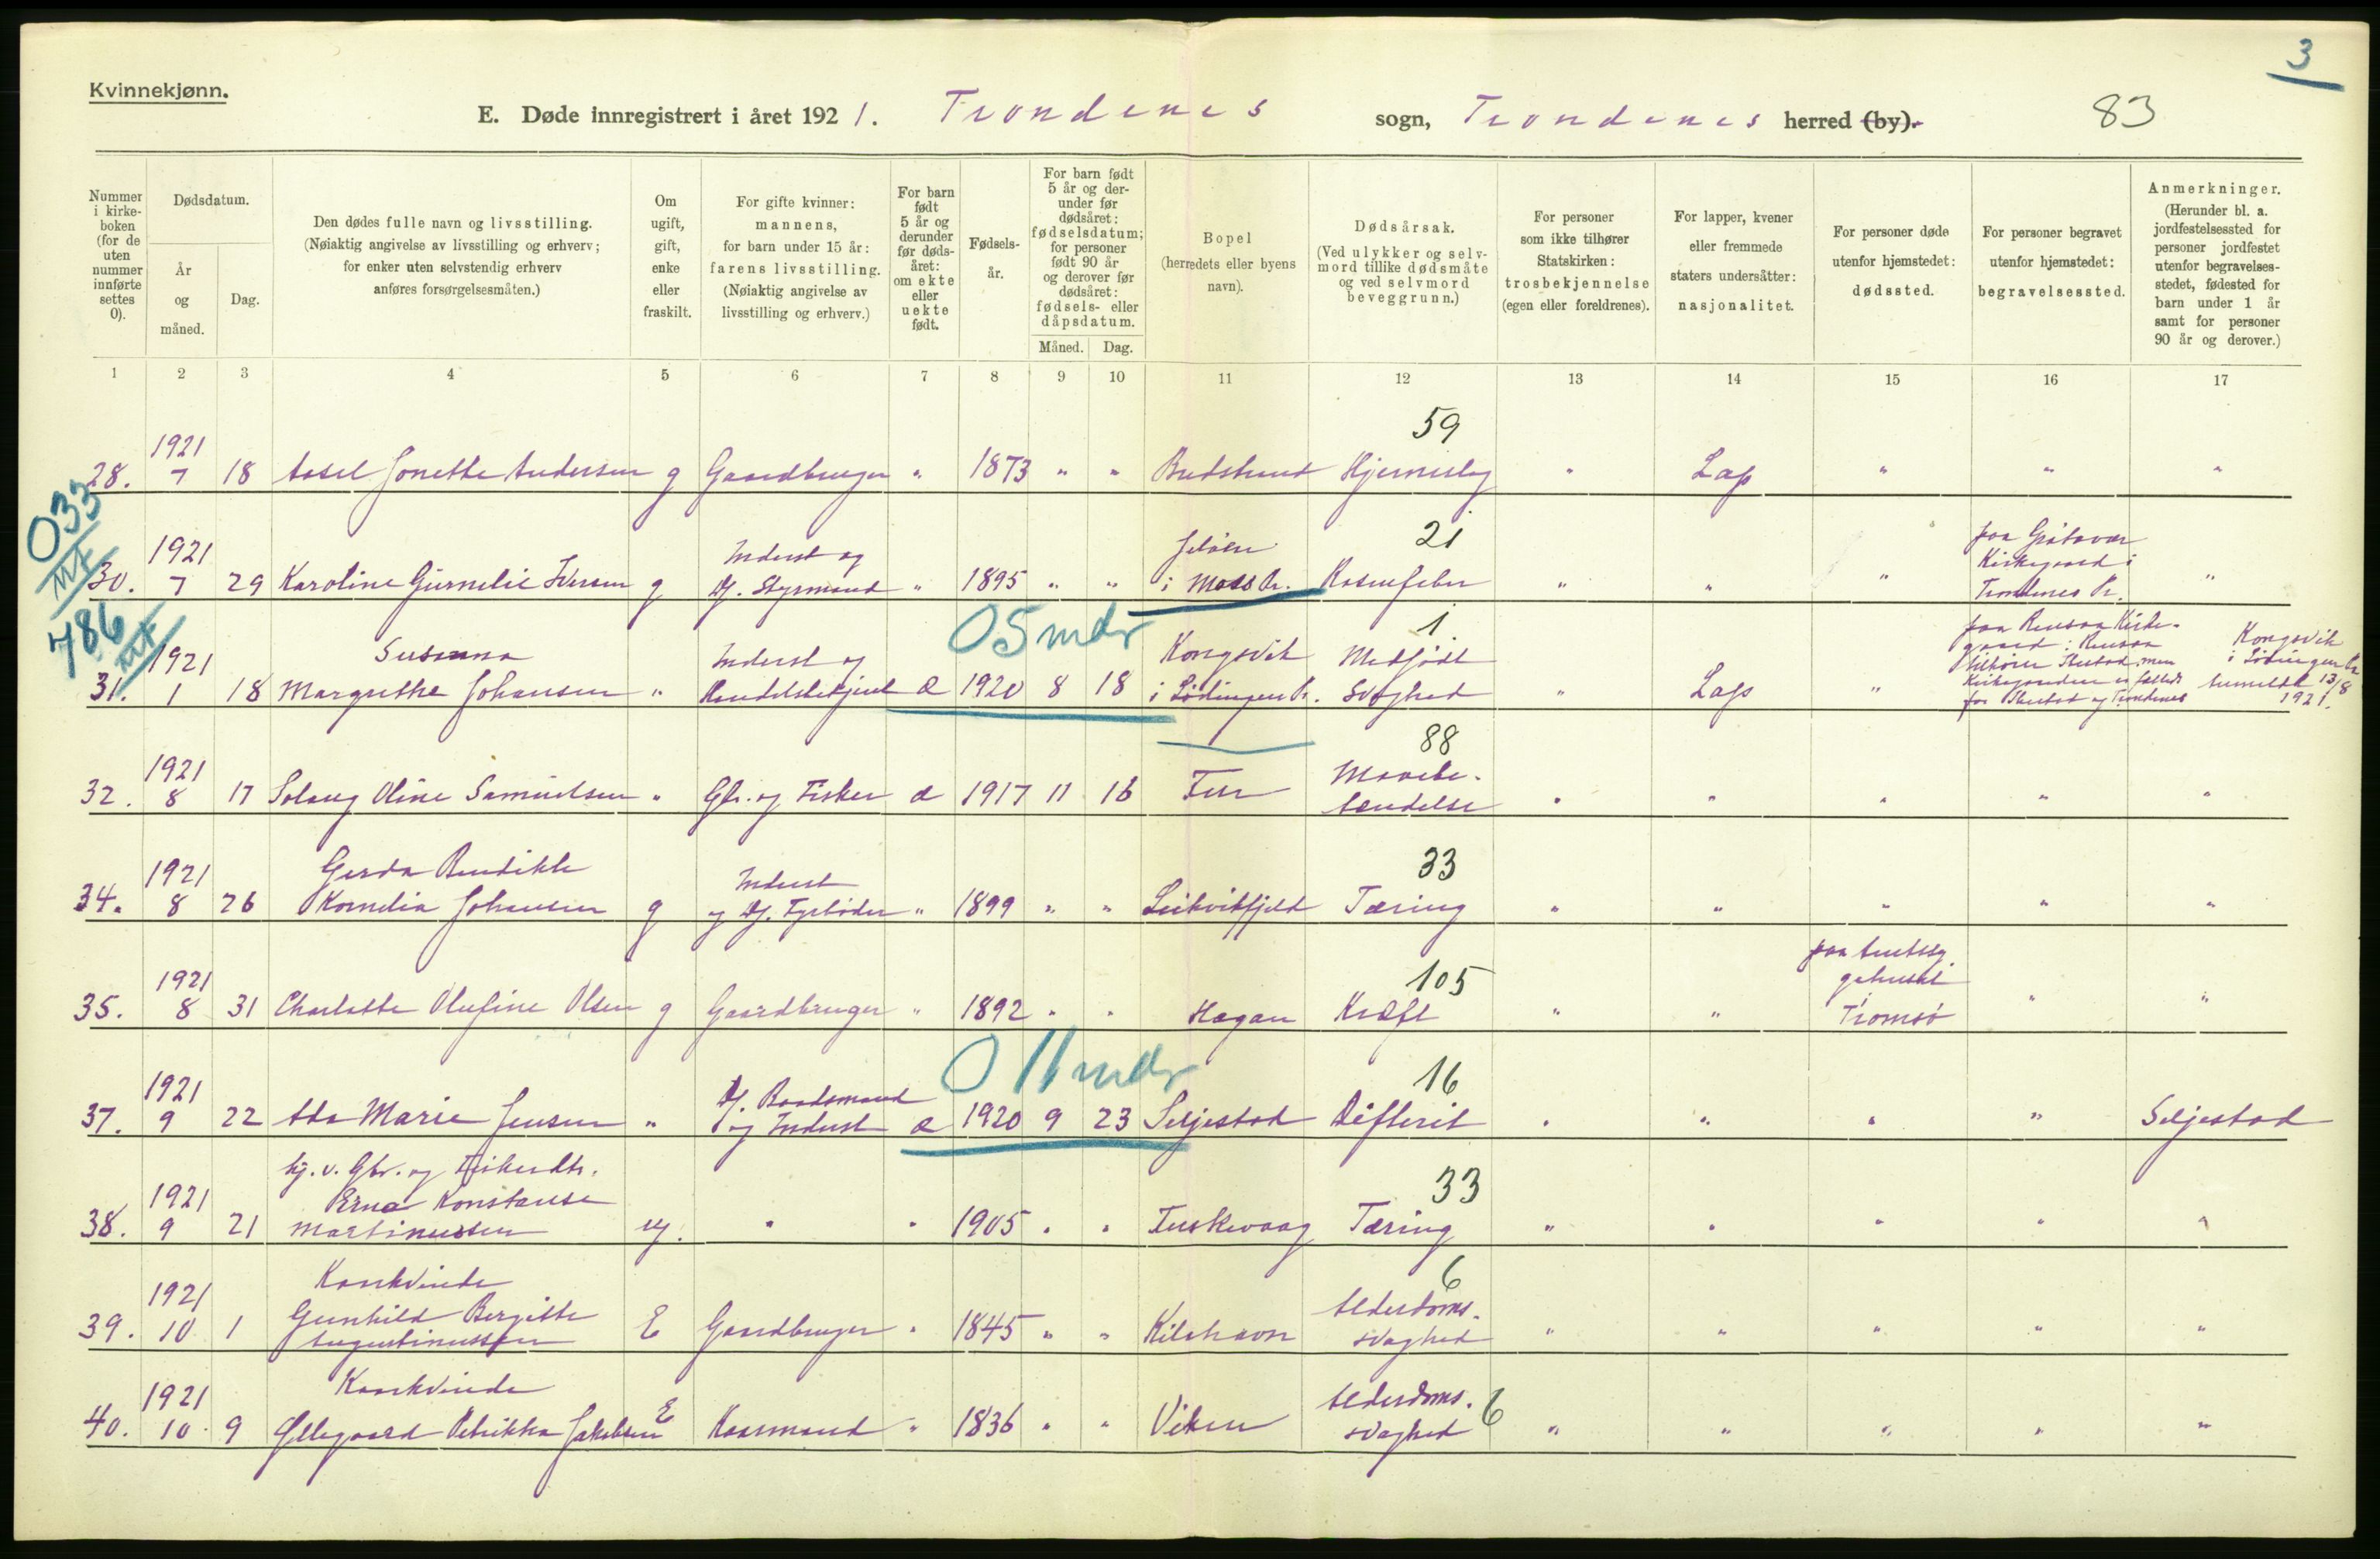 3
Kvinnekjønn.
E. Døde innregistrert i året 1921. Trondenes sogn, Trondenes herred (by). 83
Nummer i kirkeboken (for de uten nummer innførte settes 0).
Dødsdatum.
År og måned.
Dag.
Den dødes fulle navn og livsstilling. (Nøiaktig angivelse av livsstilling og erhverv; for enker uten selvstendig erhverv anføres forsørgelsesmåten.)
Om ugift, gift, enke eller fraskilt.
For gifte kvinner: mannens, for barn under 15 år: farens livsstilling. (Nøiaktig angivelse av livsstilling og erhverv.)
For barn født 5 år og derunder før dødsåret: om ekte eller uekte født.
Fødselsår.
For barn født 5 år og derunder før dødsåret: fødselsdatum; for personer født 90 år og derover før dødsåret: fødsels- eller dåpsdatum.
Måned. Dag.
Bopel (herredets eller byens navn).
Dødsårsak. (Ved ulykker og selvmord tillike dødsmåte og ved selvmord beveggrunn.)
For personer som ikke tilhører Statskirken: trosbekjennelse (egen eller foreldrenes).
For lapper, kvener eller fremmede staters undersåtter: nasjonalitet.
For personer døde utenfor hjemstedet: dødssted.
For personer begravet utenfor hjemstedet: begravelsessted.
Anmerkninger. (Herunder bl. a. jordfestelsessted for personer jordfestet utenfor begravelsesstedet, fødested for barn under 1 år samt for personer 90 år og derover.)
1 2 3 4 5 6 7 8 9 10 11 12 13 14 15 16 17
59
1921
28. 7 18 Aasel Jonette Andersen g Gaardbruger " 1873 " " Bredstrand Hjerneslag " Lap " " "
033
1921 Inderst og Jeløen 21 paa Grøtavær Kirkegaard i
30. 7 29 Karoline Iversen g Df. Styrmand " 1895 " " i Moss Pr. Rosenfeber " " " Trondenes Pr. "
786
05 mdr
1921 Susanna Inderst og Kongsvik 1 Medfødt paa Rensaa Kirkegaard: Kongsvik
31. 1 18 Margrethe Johansen " Handelsbetjent Æ 1920 8 18 i Lødingen Pr. Svaghed " Lap " i Lødingen Pr.
Anmeldt 13/8 1921.
88
1921 Mavebe-
32. 8 17 Solaug Oline Samuelsen " Gbr. og Fisker Æ 1917 11 16 tændelse " " " " "
33
1921 Gerda Bendikte Inderst
34. 8 26 Kornelia Johansen g og Df. Fyrbøder " 1899 " " Leikvikfjeld Tæring " " " " "
105 paa Amtssygehuset
1921
35. 8 31 Charlotte Olufine Olsen g Gaardbruger " 1892 " " Hagan Kræft " " Tromsø " "
0 11 mdr
16
1921 Df. Baadsmand
37. 9 22 Ada Marie Jensen " og Inderst Æ 1920 9 23 Seljestad Difterit " " " " Seljestad
hj. v. Gbr. og Fiskerdtr. 33
1921 Erna Konstanse
38. 9 21 Martinussen ug. " " 1905 " " Tuskevaag Tæring " " " " "
Kaarkvinde 6
1921 Gunhild Bergitte Alderdoms-
39. 10 1 Augustinussen E Gaardbruger " 1845 " " Kilehavn svaghed " " " " "
1921 Kaarkvinde Alderdoms-
40. 10 9 Øllegaard Petrikka Jakobsen E Kaarmand " 1836 " " Viken svaghed 6 " " " " "